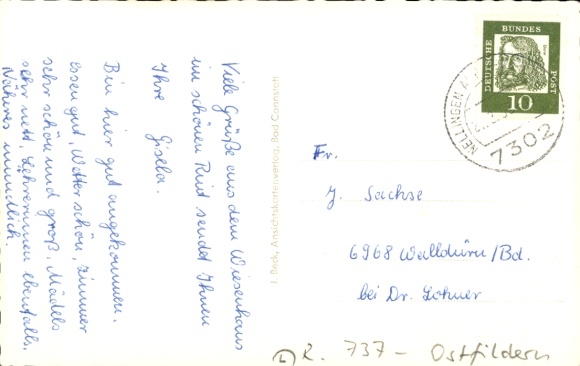 Viele Grüße aus dem Wiesenhaus
im schönen Ruit sendet Ihnen
Ihre Gisela.
Bin hier gut angekommen.
Essen gut, Wetter schön, Zimmer
sehr schön und groß. Mädels
sehr nett, Lehrerinnen ebenfalls.
Näheres mündlich.
J. Beck, Ansichtskartenverlag, Bad Cannstatt
DEUTSCHE BUNDESPOST
10
NELLINGEN
7302
Fr.
J. Sachse
6968 Walldürn/Bd.
bei Dr. Lohner
R. 737 - Ostfildern